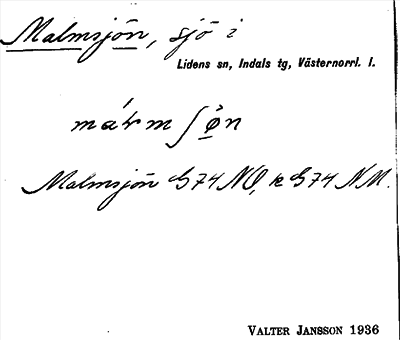 Malmsjön, sjö i
Lidens sn, Indals tg, Västernorrl. l.
Malmsjön G74 NO, k G74 NM.
VALTER JANSSON 1936